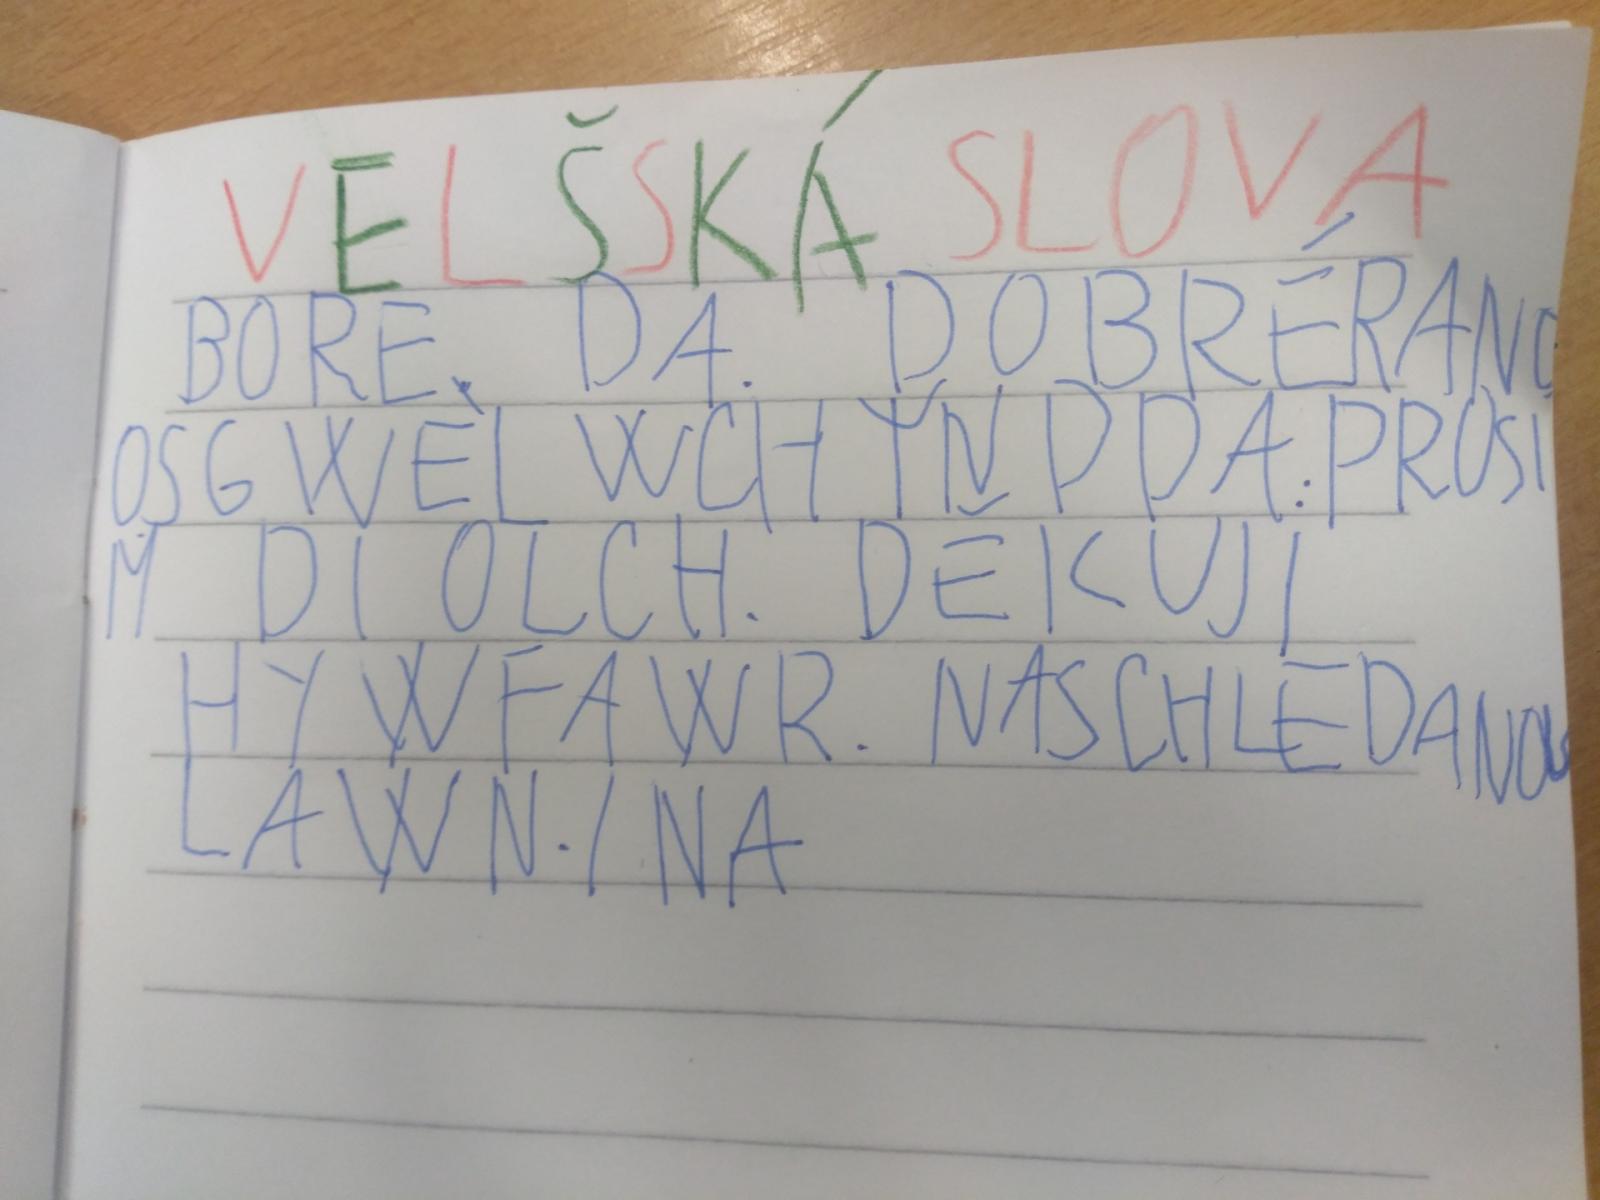 VELŠSKÁ SLOVA
BORE. DA. DOBRÉRANO
OSGWEL WCH YN DDA: PROSI
M DIOLCH. DEKUJI
HYWFAWR. NASCHLEDANOU
LAWN.INA